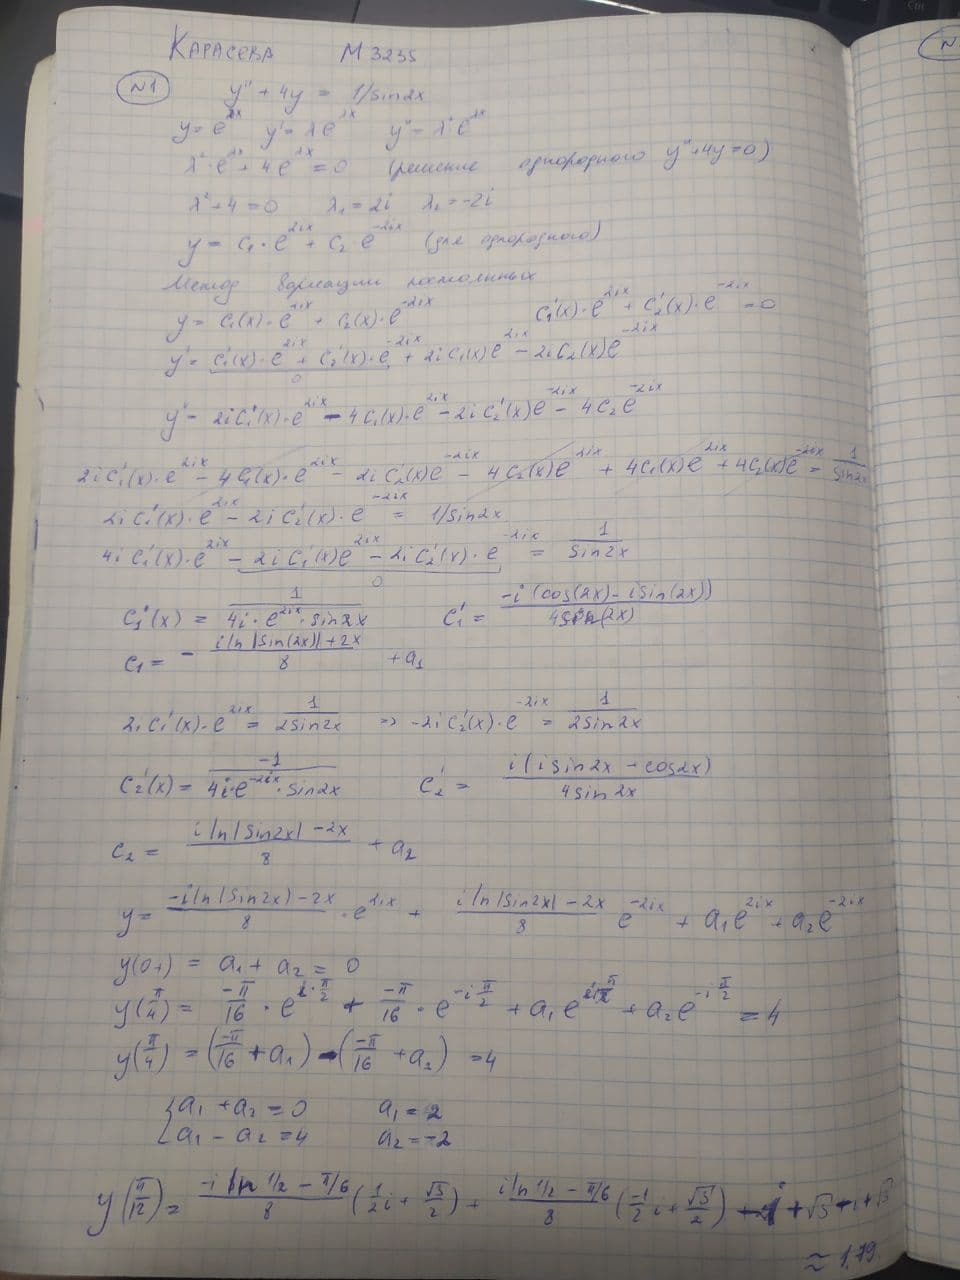 КАРАСЕВА М3235
№1 y'' + 4y = 1/sin2x
y = e^{λx} y' = λe^{λx} y'' = λ²e^{λx}
λ²·e^{λx} + 4e^{λx} = 0 (решение однородного y''+4y=0)
λ²+4=0 λ₁=2i λ₂=-2i
y = C₁·e^{2ix} + C₂ e^{-2ix} (для однородного)
Метод вариации постоянных
y = C₁(x)·e^{2ix} + C₂(x)·e^{-2ix} C₁'(x)·e^{2ix} + C₂'(x)·e^{-2ix} = 0
y' = C₁'(x)·e^{2ix} + C₂'(x)·e^{-2ix} + 2iC₁(x)e^{2ix} - 2iC₂(x)e^{-2ix}
0
y'' = 2iC₁'(x)·e^{2ix} - 4C₁(x)·e^{2ix} - 2iC₂'(x)e^{-2ix} - 4C₂e^{-2ix}
2iC₁'(x)·e^{2ix} - 4C₁(x)·e^{2ix} - 2iC₂'(x)e^{-2ix} - 4C₂(x)e^{-2ix} + 4C₁(x)e^{2ix} + 4C₂(x)e^{-2ix} = 1/sin2x
2iC₁'(x)·e^{2ix} - 2iC₂'(x)·e^{-2ix} = 1/sin2x
4iC₁'(x)·e^{2ix} - 2iC₁'(x)e^{2ix} - 2iC₂'(x)·e^{-2ix} = 1/sin2x
0
C₁'(x) = 1/(4i·e^{2ix}·sin2x) C₁' = -i(cos(2x)-isin(2x))/4sin(2x)
C₁ = - (i ln|sin(2x)|+2x)/8 + a₁
2iC₁'(x)·e^{2ix} = 1/2sin2x => -2iC₂'(x)·e^{-2ix} = 1/2sin2x
C₂'(x) = -1/(4i·e^{-2ix}·sin2x) C₂' = i(isin2x+cos2x)/4sin2x
C₂ = (i ln|sin2x|-2x)/8 + a₂
y = (-i ln|sin2x)-2x)/8 ·e^{2ix} + (i ln|sin2x|-2x)/8 e^{-2ix} + a₁e^{2ix} + a₂e^{-2ix}
y(0+) = a₁ + a₂ = 0
y(π/4) = -π/16 · e^{i·π/2} + -π/16 · e^{-iπ/2} + a₁e^{iπ/2} + a₂e^{-iπ/2} = 4
y(π/4) = (-π/16 + a₁) - (-π/16 + a₂) = 4
{a₁ + a₂ = 0 a₁ = 2
a₁ - a₂ = 4 a₂ = -2
y(π/12) = (-i ln1/2 - π/6)/8 (1/2 i + √3/2) + (i ln1/2 - π/6)/8 (-1/2 i + √3/2)
≈ 1,79